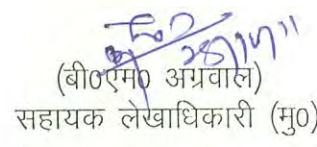 (बी0एम0 अग्रवाल)
सहायक लेखाधिकारी (मु0)